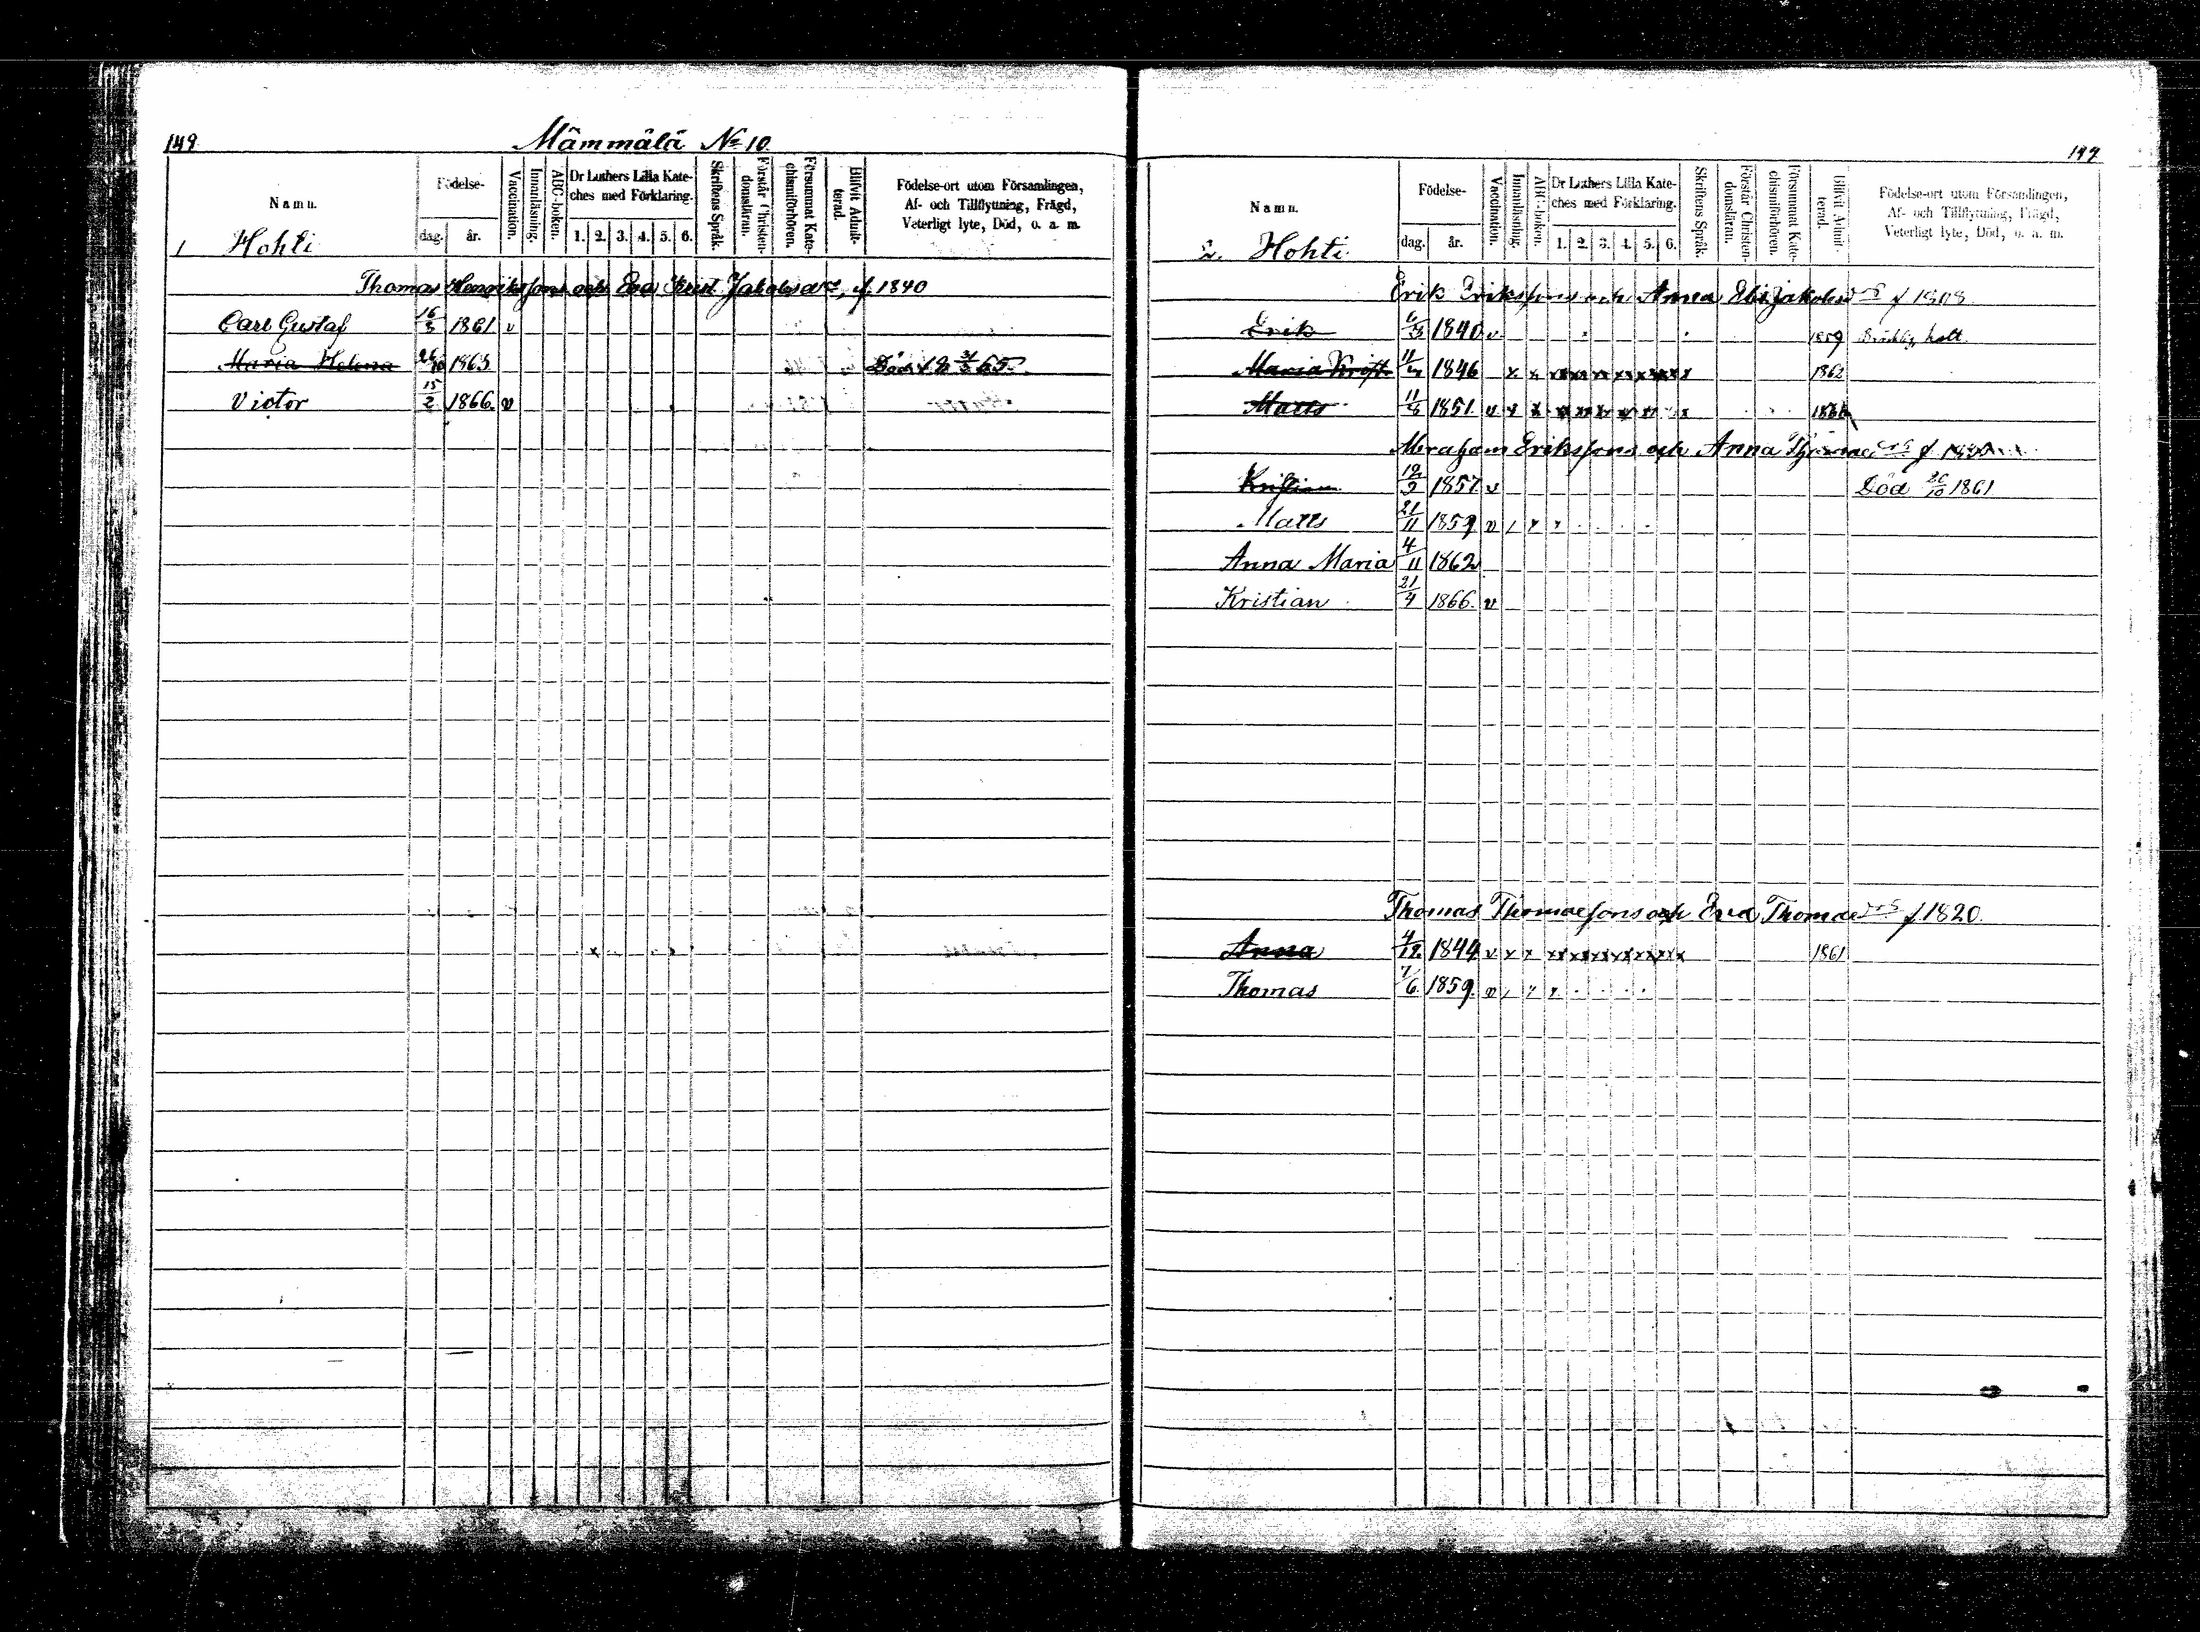 149
Mämmälä No 10.
Namn.
Födelse-
dag.
år.
Vaccination.
Innanläsning.
ABC-boken.
Dr Luthers Lilla Kate-
ches med Förklaring.
1. 2. 3. 4. 5. 6.
Skriftens Språk.
Förstår Christen-
domsläran.
Försummat Kate-
chismiförhören.
Blifvit Admit-
terad.
Födelse-ort utom Församlingen,
Af- och Tillflyttning, Frägd,
Veterligt lyte, Död, o. a. m.
1 Hohti
Thomas Henrikssons och Eva Krist. Jakobs f. 1840
Carl Gustaf 16/3 1861 v
Maria Helena 1863 Död 65
Victor 15/2 1866. v
149
Namn.
Födelse-
dag.
år.
Vaccination.
Innanläsning.
ABC-boken.
Dr Luthers Lilla Kate-
ches med Förklaring.
1. 2. 3. 4. 5. 6.
Skriftens Språk.
Förstår Christen-
domsläran.
Försummat Kate-
chismiförhören.
Blifvit Admit-
terad.
Födelse-ort utom Församlingen,
Af- och Tillflyttning, Frägd,
Veterligt lyte, Död, o. a. m.
2. Hohti
Erik Erikssons och Anna f 1808
Erik 1840 v 1859 halt.
Maria 1846 x x 1862
Matts 1851 v x x
Abraham Erikssons och Anna
Kristian 1857 v Död 26/10 1861
Matts 21/11 1859 v
Anna Maria 4/11 1862
Kristian 21/4 1866. v
Thomas Thomassons och Eva Thomae f 1820.
Anna 4/12 1844 v x x 1861
Thomas 7/6 1859. v